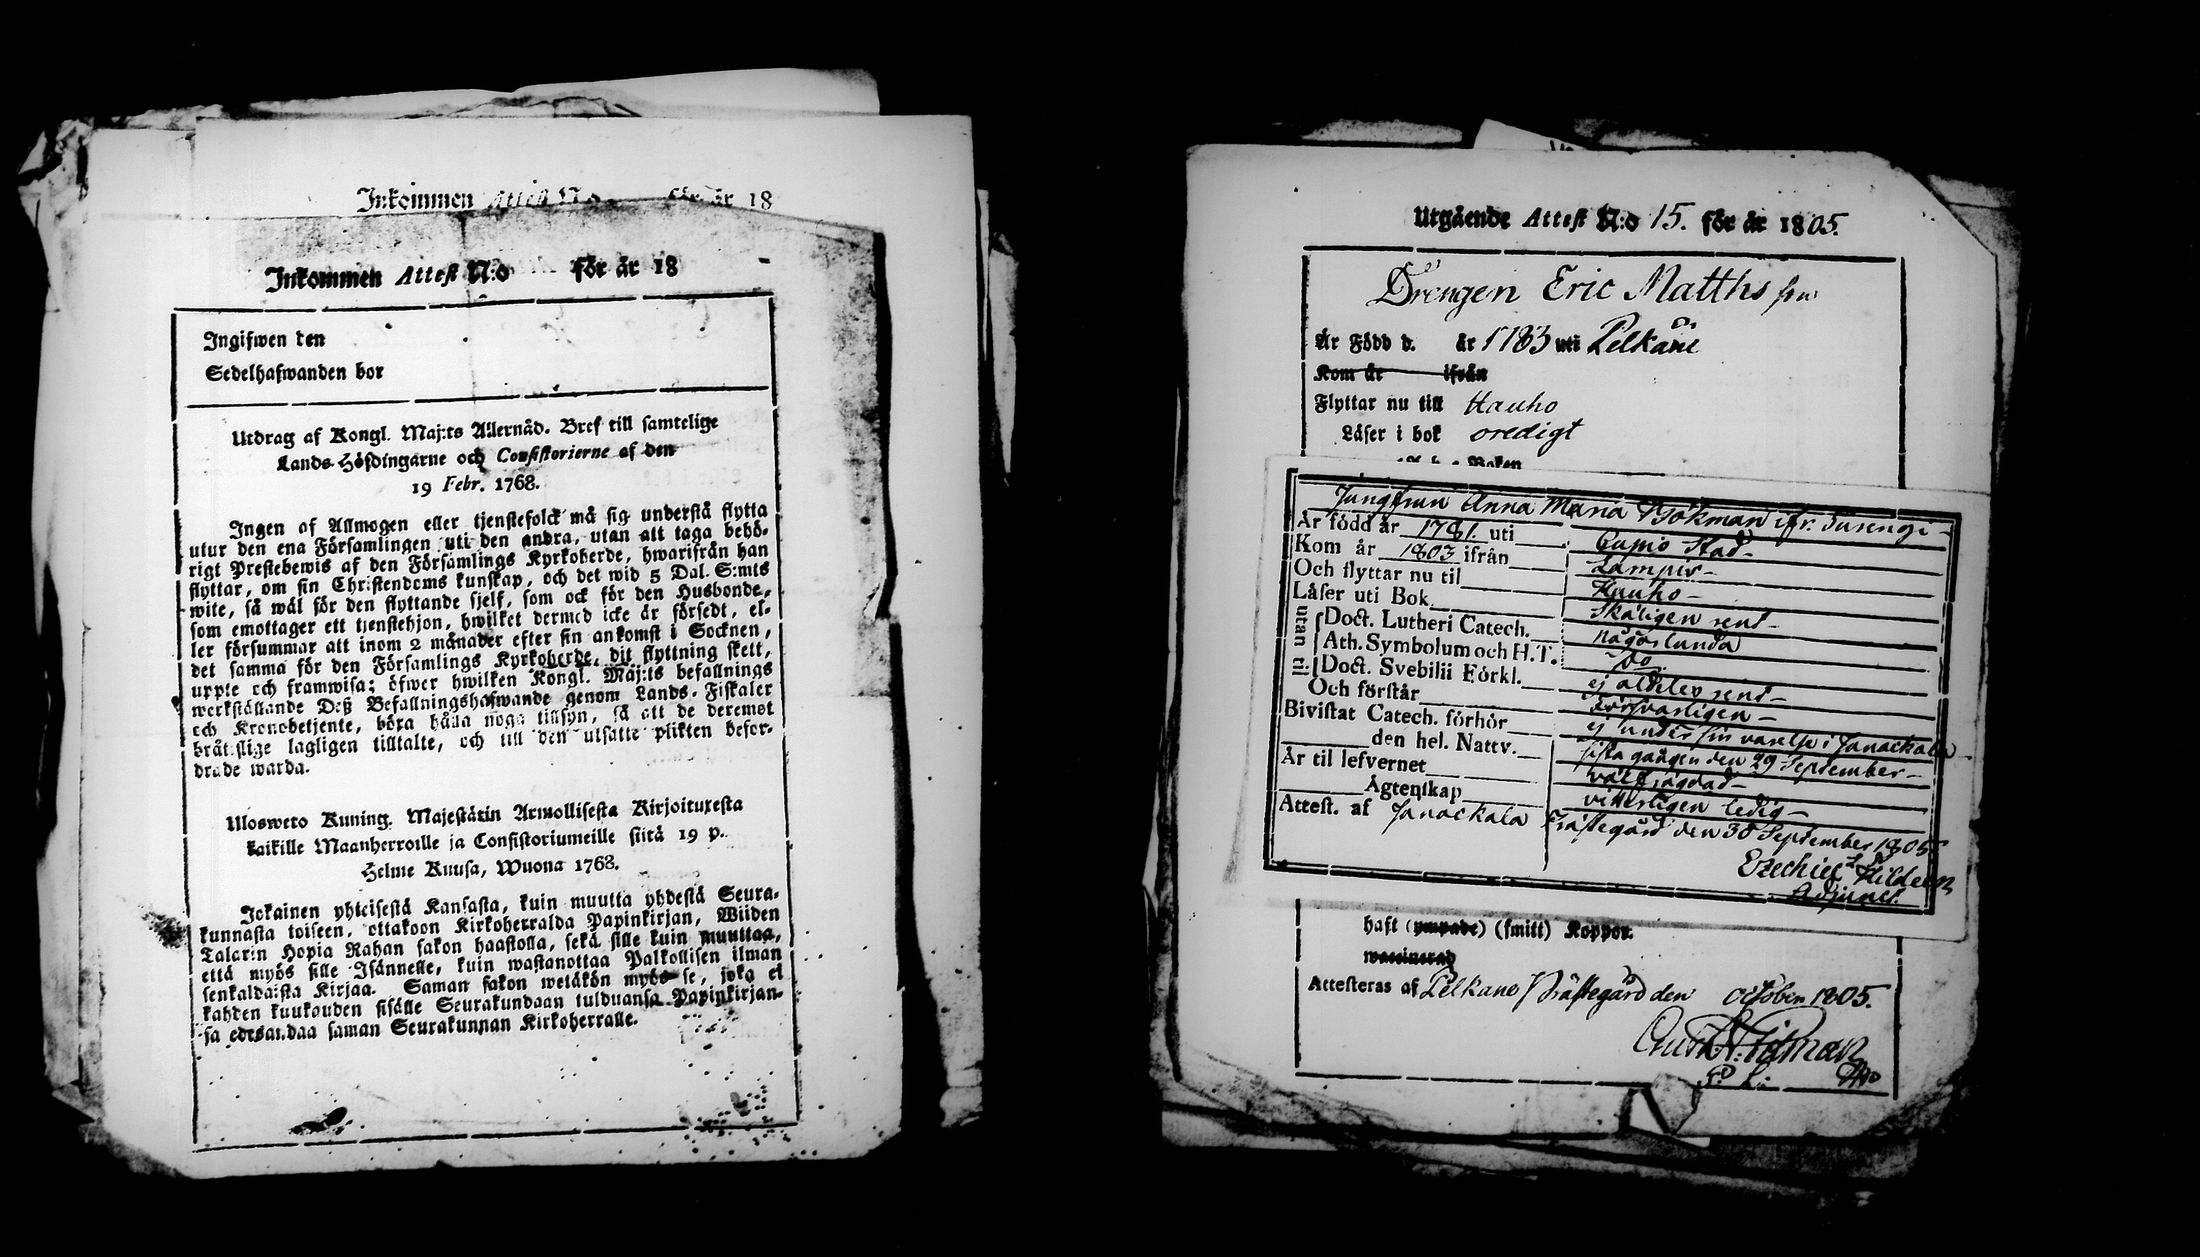 Inkommen Attest N:o för år 18
Inkommen Attest N:o för år 18
Ingifwen den
Sedelhafwanden bor
Utdrag af Kongl. Maj:ts Allernåd. Bref till samtelige
Lands-Höfdingarne och Consistorierne af den
19 Febr. 1768.
Ingen af Allmogen eller tjenstefolck må sig understå flytta
utur den ena Församlingen uti den andra, utan att taga behö-
rigt Prestebewis af den Församlings Kyrkoherde, hwarifrån han
flyttar, om sin Christendoms kunskap, och det wid 5 Dal. S:mts
wite, så wäl för den flyttande sjelf, som ock för den Husbonde,
som emottager ett tjenstehjon, hwilket dermed icke är försedt, el-
ler försummar att inom 2 månader efter sin ankomst i Socknen,
det samma för den Församlings Kyrkoherde, dit flyttning skett,
uppte och framwisa; öfwer hwilken Kongl. Maj:ts befallnings
werkställande Deß Befallningshafwande genom Lands-Fiskaler
och Kronobetjente, böra hålla noga tillsyn, så att de deremot
bråtslige lagligen tilltalte, och till den utsatte plikten befor-
drade warda.
Ulosweto Kuning. Majestätin Armollisesta Kirjoituxesta
kaikille Maanherroille ja Consistoriumeille siitä 19 p.
Helme Kuusa, Wuona 1768.
Jokainen yhteisestä Kansasta, kuin muutta yhdestä Seura-
kunnasta toiseen, ottakoon Kirkoherralda Papinkirjan, Wiiden
Talarin Hopia Rahan sakon haastolla, sekä sille kuin muuttaa,
että myös sille Isännelle, kuin wastanottaa Palkollisen ilman
senkaldaista Kirjaa. Saman sakon wetäkön myös se, joka ei
kahden kuukouden sisälle Seurakundaan tulduansa Papinkirjan-
sa edesandaa saman Seurakunnan Kirkoherralle.
Utgående Attest N:o 15. för år 1805.
Drengen Eric Matths son
Är Född d. år 1783 uti Pelkäne
Kom år ifrån
Flyttar nu till Hauho
Läser i bok oredigt
Boken
Jungfrun Anna Maria Bökman ifr. Turengi-
Är född år 1781. uti Cupio Stad-
Kom år 1803 ifrån Lampis-
Och flyttar nu til Hauho-
Läser uti Bok Skäligen rent-
utan til Doct. Lutheri Catech. någorlunda
Ath. Symbolum och H.T. Do
Doct. Svebilii Förkl. ej aldeles rent-
Och förstår Försvarligen-
Bivistat Catech. förhör ej under sin varelse i Janackala
den hel. Nattv. sista gången den 29 September-
Är til lefvernet välfrägdad-
Ägtenskap vitterligen ledig-
Attest. af Janackala Prästegård den 30 September 1805
Ezechiel Hildeen
Adjunct.
haft (ympade) (smitt) Koppor.
waccinerad
Attesteras af Pelkane Prästegård den october 1805.
P. L.